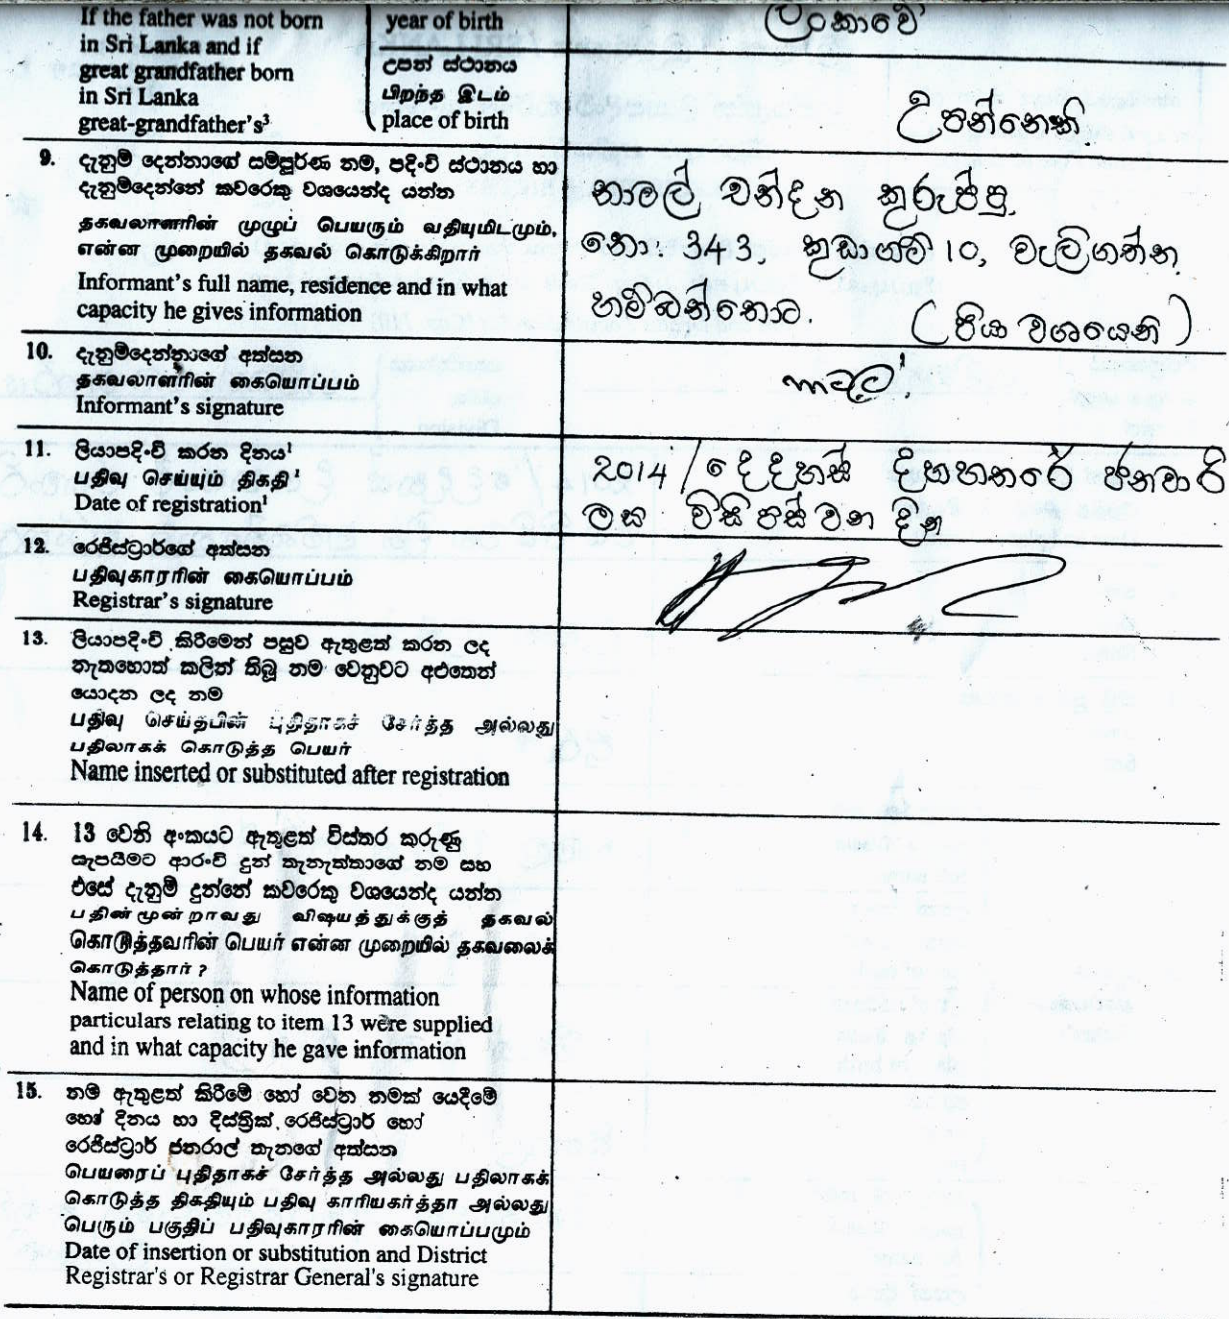 If the father was not born
in Sri Lanka and if
great grandfather born
in Sri Lanka
great-grandfather's³
year of birth
උපන් ස්ථානය
பிறந்த இடம்
place of birth
ලංකාවේ
උපන්නෙකි
9. දැනුම් දෙන්නාගේ සම්පූර්ණ නම, පදිංචි ස්ථානය හා
දැනුම්දෙන්නේ කවරෙකු වශයෙන්ද යන්න
தகவலாளரின் முழுப் பெயரும் வதியுமிடமும்,
என்ன முறையில் தகவல் கொடுக்கிறார்
Informant's full name, residence and in what
capacity he gives information
නාමල් චන්දන කුරුප්පු
නො: 343, කුඩාගම් 10, වැලිගත්ත
හම්බන්තොට. (පියා වශයෙනි)
10. දැනුම්දෙන්නාගේ අත්සන
தகவலாளரின் கையொப்பம்
Informant's signature
11. ලියාපදිංචි කරන දිනය¹
பதிவு செய்யும் திகதி¹
Date of registration¹
2014 / දෙදහස් දහහතරේ ජනවාරි
මස විසිපස් වන දින
12. රෙජිස්ට්‍රාර්ගේ අත්සන
பதிவுகாரரின் கையொப்பம்
Registrar's signature
13. ලියාපදිංචි කිරීමෙන් පසුව ඇතුළත් කරන ලද
නැතහොත් කලින් තිබූ නම වෙනුවට අළුතෙන්
යොදන ලද නම
பதிவு செய்தபின் புதிதாகச் சேர்த்த அல்லது
பதிலாகக் கொடுத்த பெயர்
Name inserted or substituted after registration
14. 13 වෙනි අංකයට ඇතුළත් විස්තර කරුණු
සැපයීමට ආරංචි දුන් තැනැත්තාගේ නම සහ
එසේ දැනුම් දුන්නේ කවරෙකු වශයෙන්ද යන්න
பதின்மூன்றாவது விஷயத்துக்குத் தகவல்
கொடுத்தவரின் பெயர் என்ன முறையில் தகவலைக்
கொடுத்தார் ?
Name of person on whose information
particulars relating to item 13 were supplied
and in what capacity he gave information
15. නම ඇතුළත් කිරීමේ හෝ වෙන නමක් යෙදීමේ
හෝ දිනය හා දිස්ත්‍රික් රෙජිස්ට්‍රාර් හෝ
රෙජිස්ට්‍රාර් ජනරාල් තැනගේ අත්සන
பெயரைப் புதிதாகச் சேர்த்த அல்லது பதிலாகக்
கொடுத்த திகதியும் பதிவு காரியகர்த்தா அல்லது
பெரும் பகுதிப் பதிவுகாரரின் கையொப்பமும்
Date of insertion or substitution and District
Registrar's or Registrar General's signature